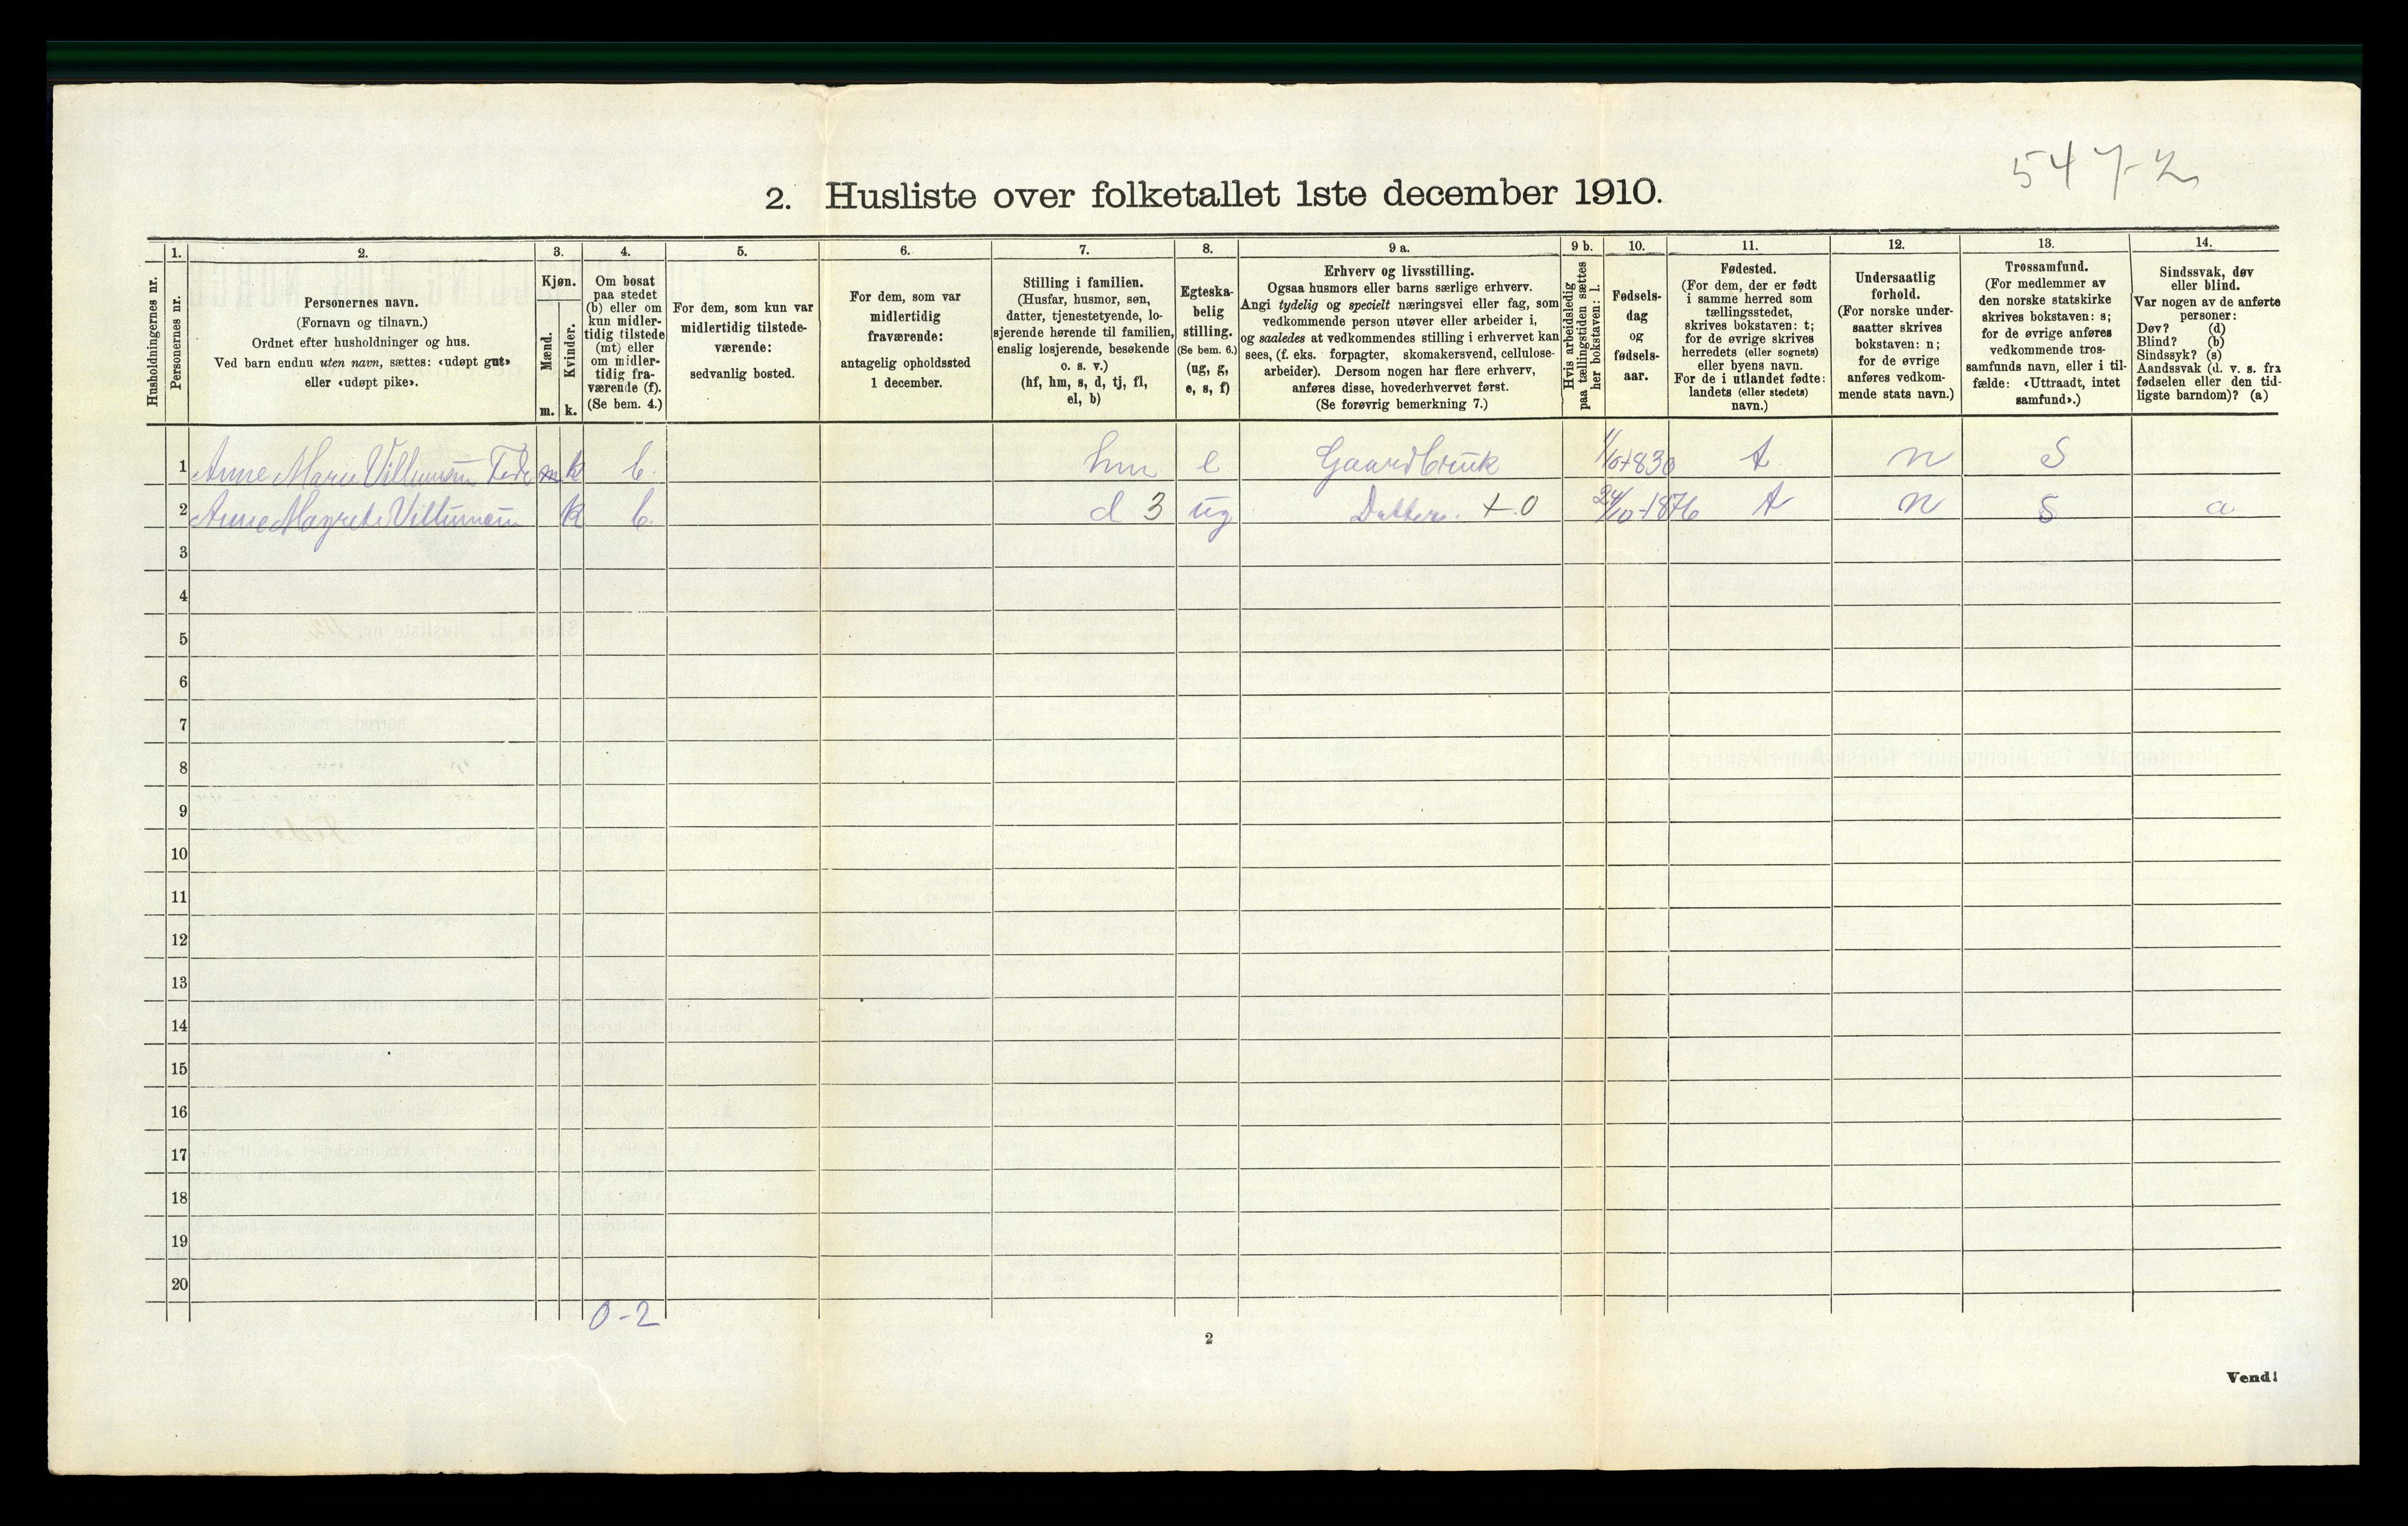 547-2
2. Husliste over folketallet 1ste december 1910.
Husholdningernes nr.
1.
Personernes nr.
2.
Personernes navn.
(Fornavn og tilnavn.)
Ordnet efter husholdninger og hus.
Ved barn endnu uten navn, sættes: «udøpt gut»
eller «udøpt pike».
3.
Kjøn.
Mænd.
Kvinder.
m. k.
4.
Om bosat
paa stedet
(b) eller om
kun midler-
tidig tilstede
(mt) eller
om midler-
tidig fra-
værende (f).
(Se bem. 4.)
5.
For dem, som kun var
midlertidig tilstede-
værende:
sedvanlig bosted.
6.
For dem, som var
midlertidig
fraværende:
antagelig opholdssted
1 december.
7.
Stilling i familien.
(Husfar, husmor, søn,
datter, tjenestetyende, lo-
sjerende hørende til familien,
enslig losjerende, besøkende
o. s. v.)
(hf, hm, s, d, tj, fl,
el, b)
8.
Egteska-
belig
stilling.
(Se bem. 6.)
(ug, g,
e, s, f)
9 a.
Erhverv og livsstilling.
Ogsaa husmors eller barns særlige erhverv.
Angi tydelig og specielt næringsvei eller fag, som
vedkommende person utøver eller arbeider i,
og saaledes at vedkommendes stilling i erhvervet kan
sees, (f. eks. forpagter, skomakersvend, cellulose-
arbeider). Dersom nogen har flere erhverv,
anføres disse, hovederhvervet først.
(Se forøvrig bemerkning 7.)
9 b.
Hvis arbeidsledig
paa tællingstiden sættes
her bokstaven: l.
10.
Fødsels-
dag
og
fødsels-
aar.
11.
Fødested.
(For dem, der er født
i samme herred som
tællingsstedet,
skrives bokstaven: t;
for de øvrige skrives
herredets (eller sognets)
eller byens navn.
For de i utlandet fødte:
landets (eller stedets)
navn.)
12.
Undersaatlig
forhold.
(For norske under-
saatter skrives
bokstaven: n;
for de øvrige
anføres vedkom-
mende stats navn.)
13.
Trossamfund.
(For medlemmer av
den norske statskirke
skrives bokstaven: s;
for de øvrige anføres
vedkommende tros-
samfunds navn, eller i til-
fælde: «Uttraadt, intet
samfund».)
14.
Sindssvak, døv
eller blind.
Var nogen av de anførte
personer:
Døv? (d)
Blind? (b)
Sindssyk? (s)
Aandssvak (d. v. s. fra
fødselen eller den tid-
ligste barndom)? (a)
1 Anne Marie Villumsen k b. hm e Gaardbruk 1/10 1830 t n S
2 Anne Magrete Villumsen k b. d 3 ug Datter. +.0 24/10-1876 t n S a
3
4
5
6
7
8
9
10
11
12
13
14
15
16
17
18
19
20
0-2
2
Vend!